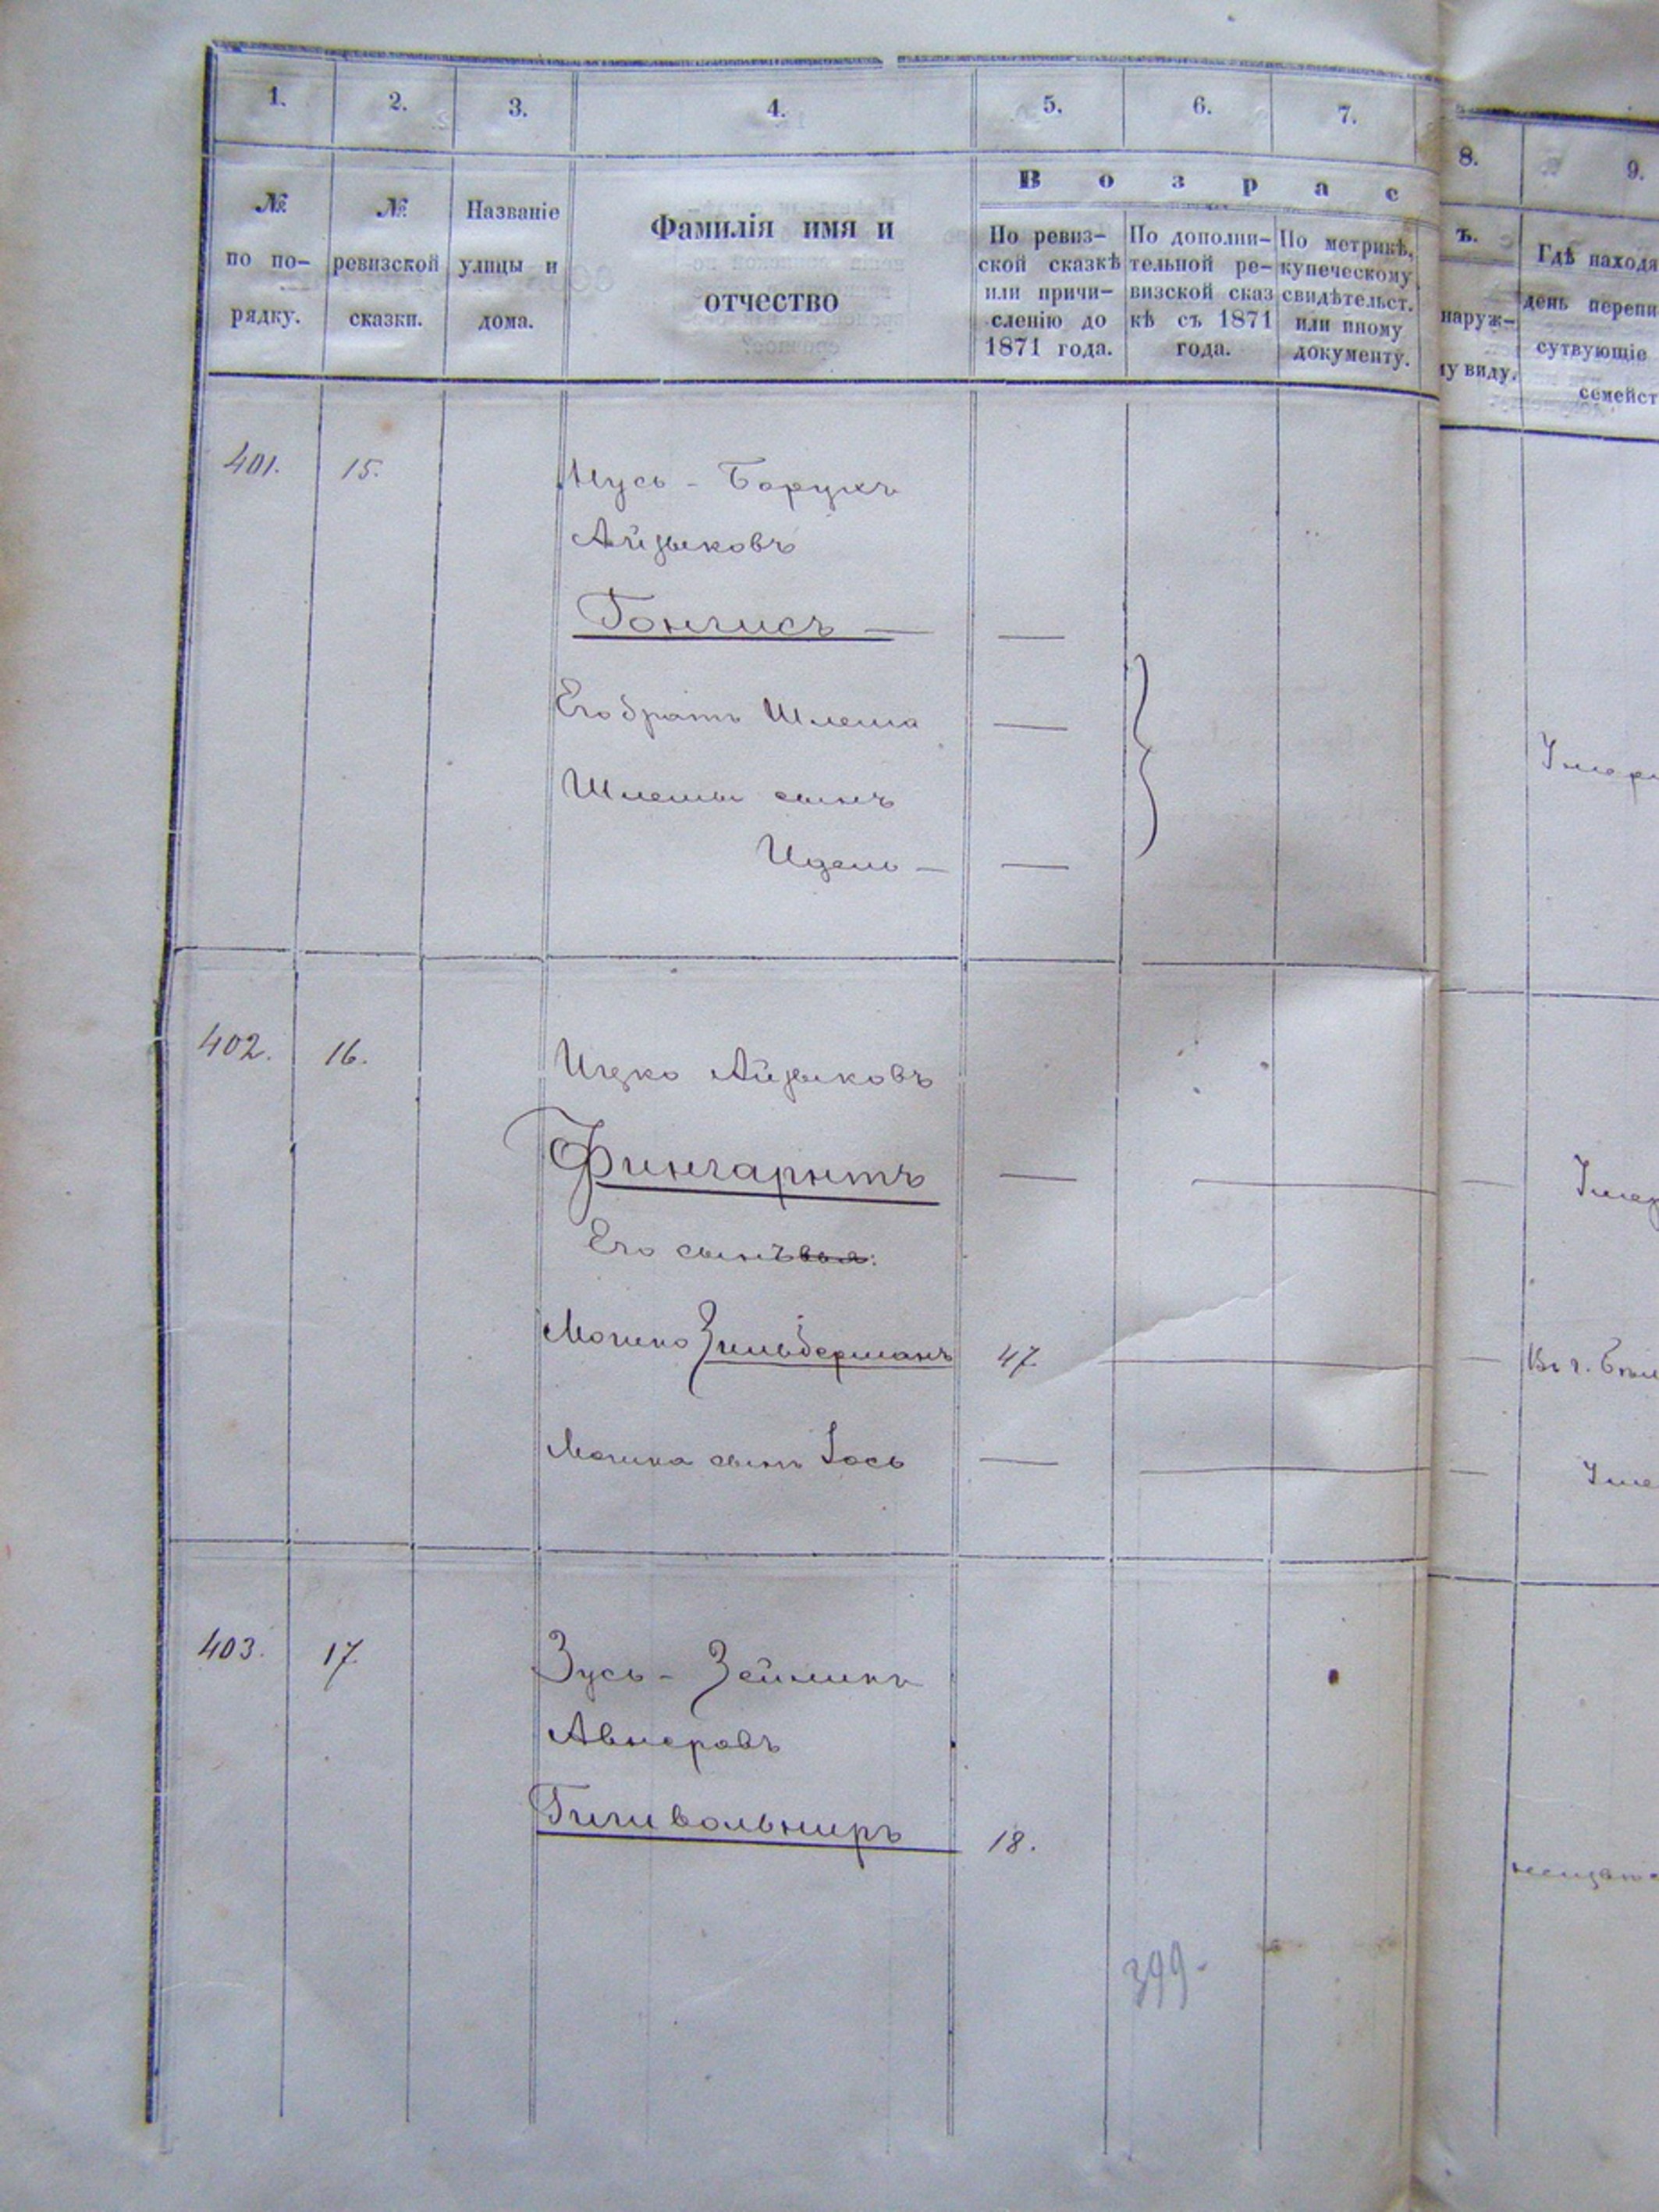 1. 2. 3. 4. 5. 6. 7. 8. 9.
№ по по-рядку.
№ ревизской сказки.
Названіе улицы и дома.
Фамилія имя и отчество
В о з р а с
ъ.
По ревиз-
ской сказкѣ
или причи-
сленію до
1871 года.
По дополни-
тельной ре-
визской сказ
кѣ съ 1871
года.
По метрикѣ,
купеческому
свидѣтельст.
или иному
документу.
наруж-
му виду.
Гдѣ находя
день перепи
сутвующіе
семейст
401. 15. Нусь - Борухъ
Айзыковъ
Гонгисъ —
Его братъ Шлема —
Шлемы сынъ
Идель — —
Умер
402. 16. Ицко Айзыковъ
Фингарытъ — — — Умер
Его сынъ
Мошко Зильберманъ 47. — — Въ г.
Мошка сынъ Іось — — — Уме
403. 17 Зусь - Зейликъ
Авнеровъ
Гигивольниръ 18.
неизвѣ
399.